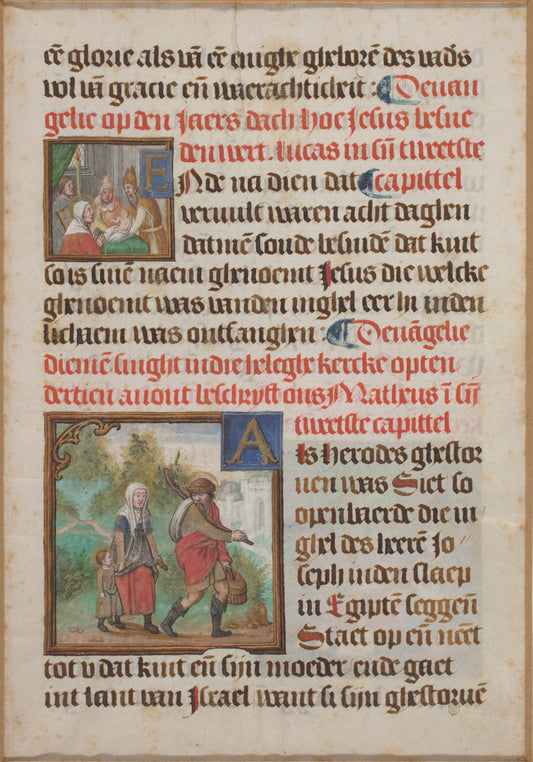 eē glorie als vā eē enighe gheborē des vad's
vol vā gracie eñ waerachticheit : Deuan
gelie op den Jaers dach hoe Jesus besne
den wert. lucas in sijn tweetste
ENde na dien dat capittel
veruult waren acht daghen
datmē soude besnidē dat kint
so is sinē naem ghenoemt Jesus die welcke
ghenoemt was vanden inghel eer hi inden
lichaem was ontfanghen : Deuāgelie
diemē singht in die heleghe kercke op ten
dertien auont beschryft ons Matheus ī sijn
tweetste capittel
Als herodes ghestor
uen was Siet so
openbaerde die in
ghel des heerē Jo
seph inden slaep
in Egiptē seggeñ
Staet op eñ neēt
tot v dat kint eñ sijn moeder ende gaet
int lant van Israel want si sijn ghestoruē